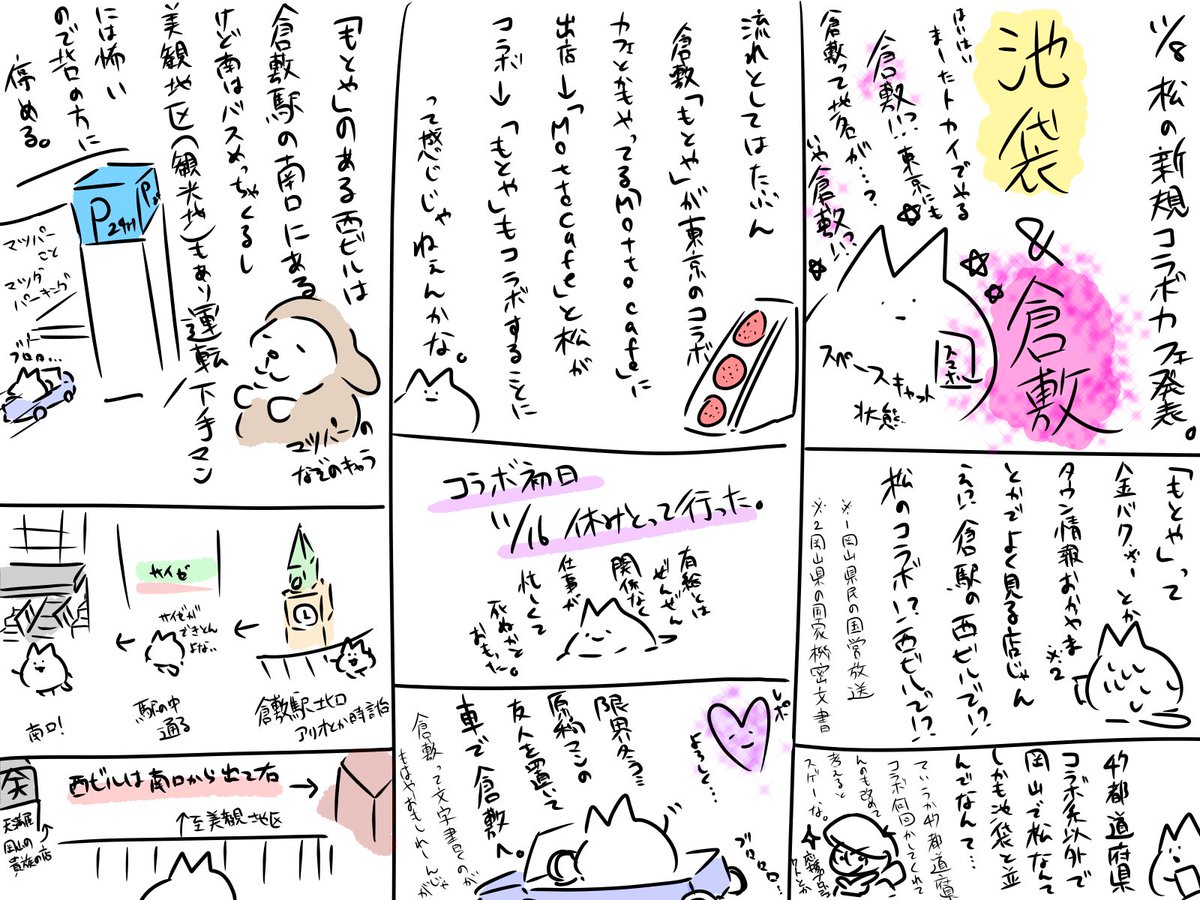 11/8 松の新規コラボカフェ発表。
池袋
&
倉敷
はいはい
まーたトカイでやる
倉敷っ?!!東京にも
倉敷って地名が……?
いや倉敷!!?
スマホ
スペースキャット
状態
「もとや」って
金バク※1とか
タウン情報おかやま※2
とかでよく見る店じゃん
え!?倉駅の西ビルで!?
松のコラボ!?西ビルで!?
※1岡山県民の国営放送
※2岡山県の国家機密文書
47都道府県
コラボ系以外で
岡山で松なんて
しかも池袋と並
んでなんて…
ていうか47都道府県
コラボ何回かしてくれて
んのも改めて
考えると
スゲーな。
流れとしてはたぶん
倉敷「もとや」が東京のコラボ
カフェとかもやってる「Motto cafe」に
出店→「Motto cafe」と松が
コラボ→「もとや」もコラボすることに
って感じじゃねぇんかな。
コラボ初日
11/16 休みとって行った。
有給とは
ぜんぜん
関係なく
仕事が
忙しくて
死ぬかと
おもった。
レポ
よろしく…
限界夕ミ
原稿マンの
友人を置いて
車で倉敷へ。
倉敷って文字書くのが
もはやあやしれーんじゃが
ブロロロ…!
「もとや」のある西ビルは
倉敷駅の南口にある
けど南はバスめっちゃくるし
美観地区(観光地)もあり運転下手マン
には怖い
ので北口の方に
停める。
P
24H
マツパー
こと
マツダ
パーキング
ブロロ…
マツパーの
なぞのキャラ
倉敷駅北口
アリオとか時計台
サイゼ
サイゼが
できとん
よな…
駅の中
通る
南口!
西ビルは南口から出て右
↑至美観地区
天満屋
岡山の
貴族の店